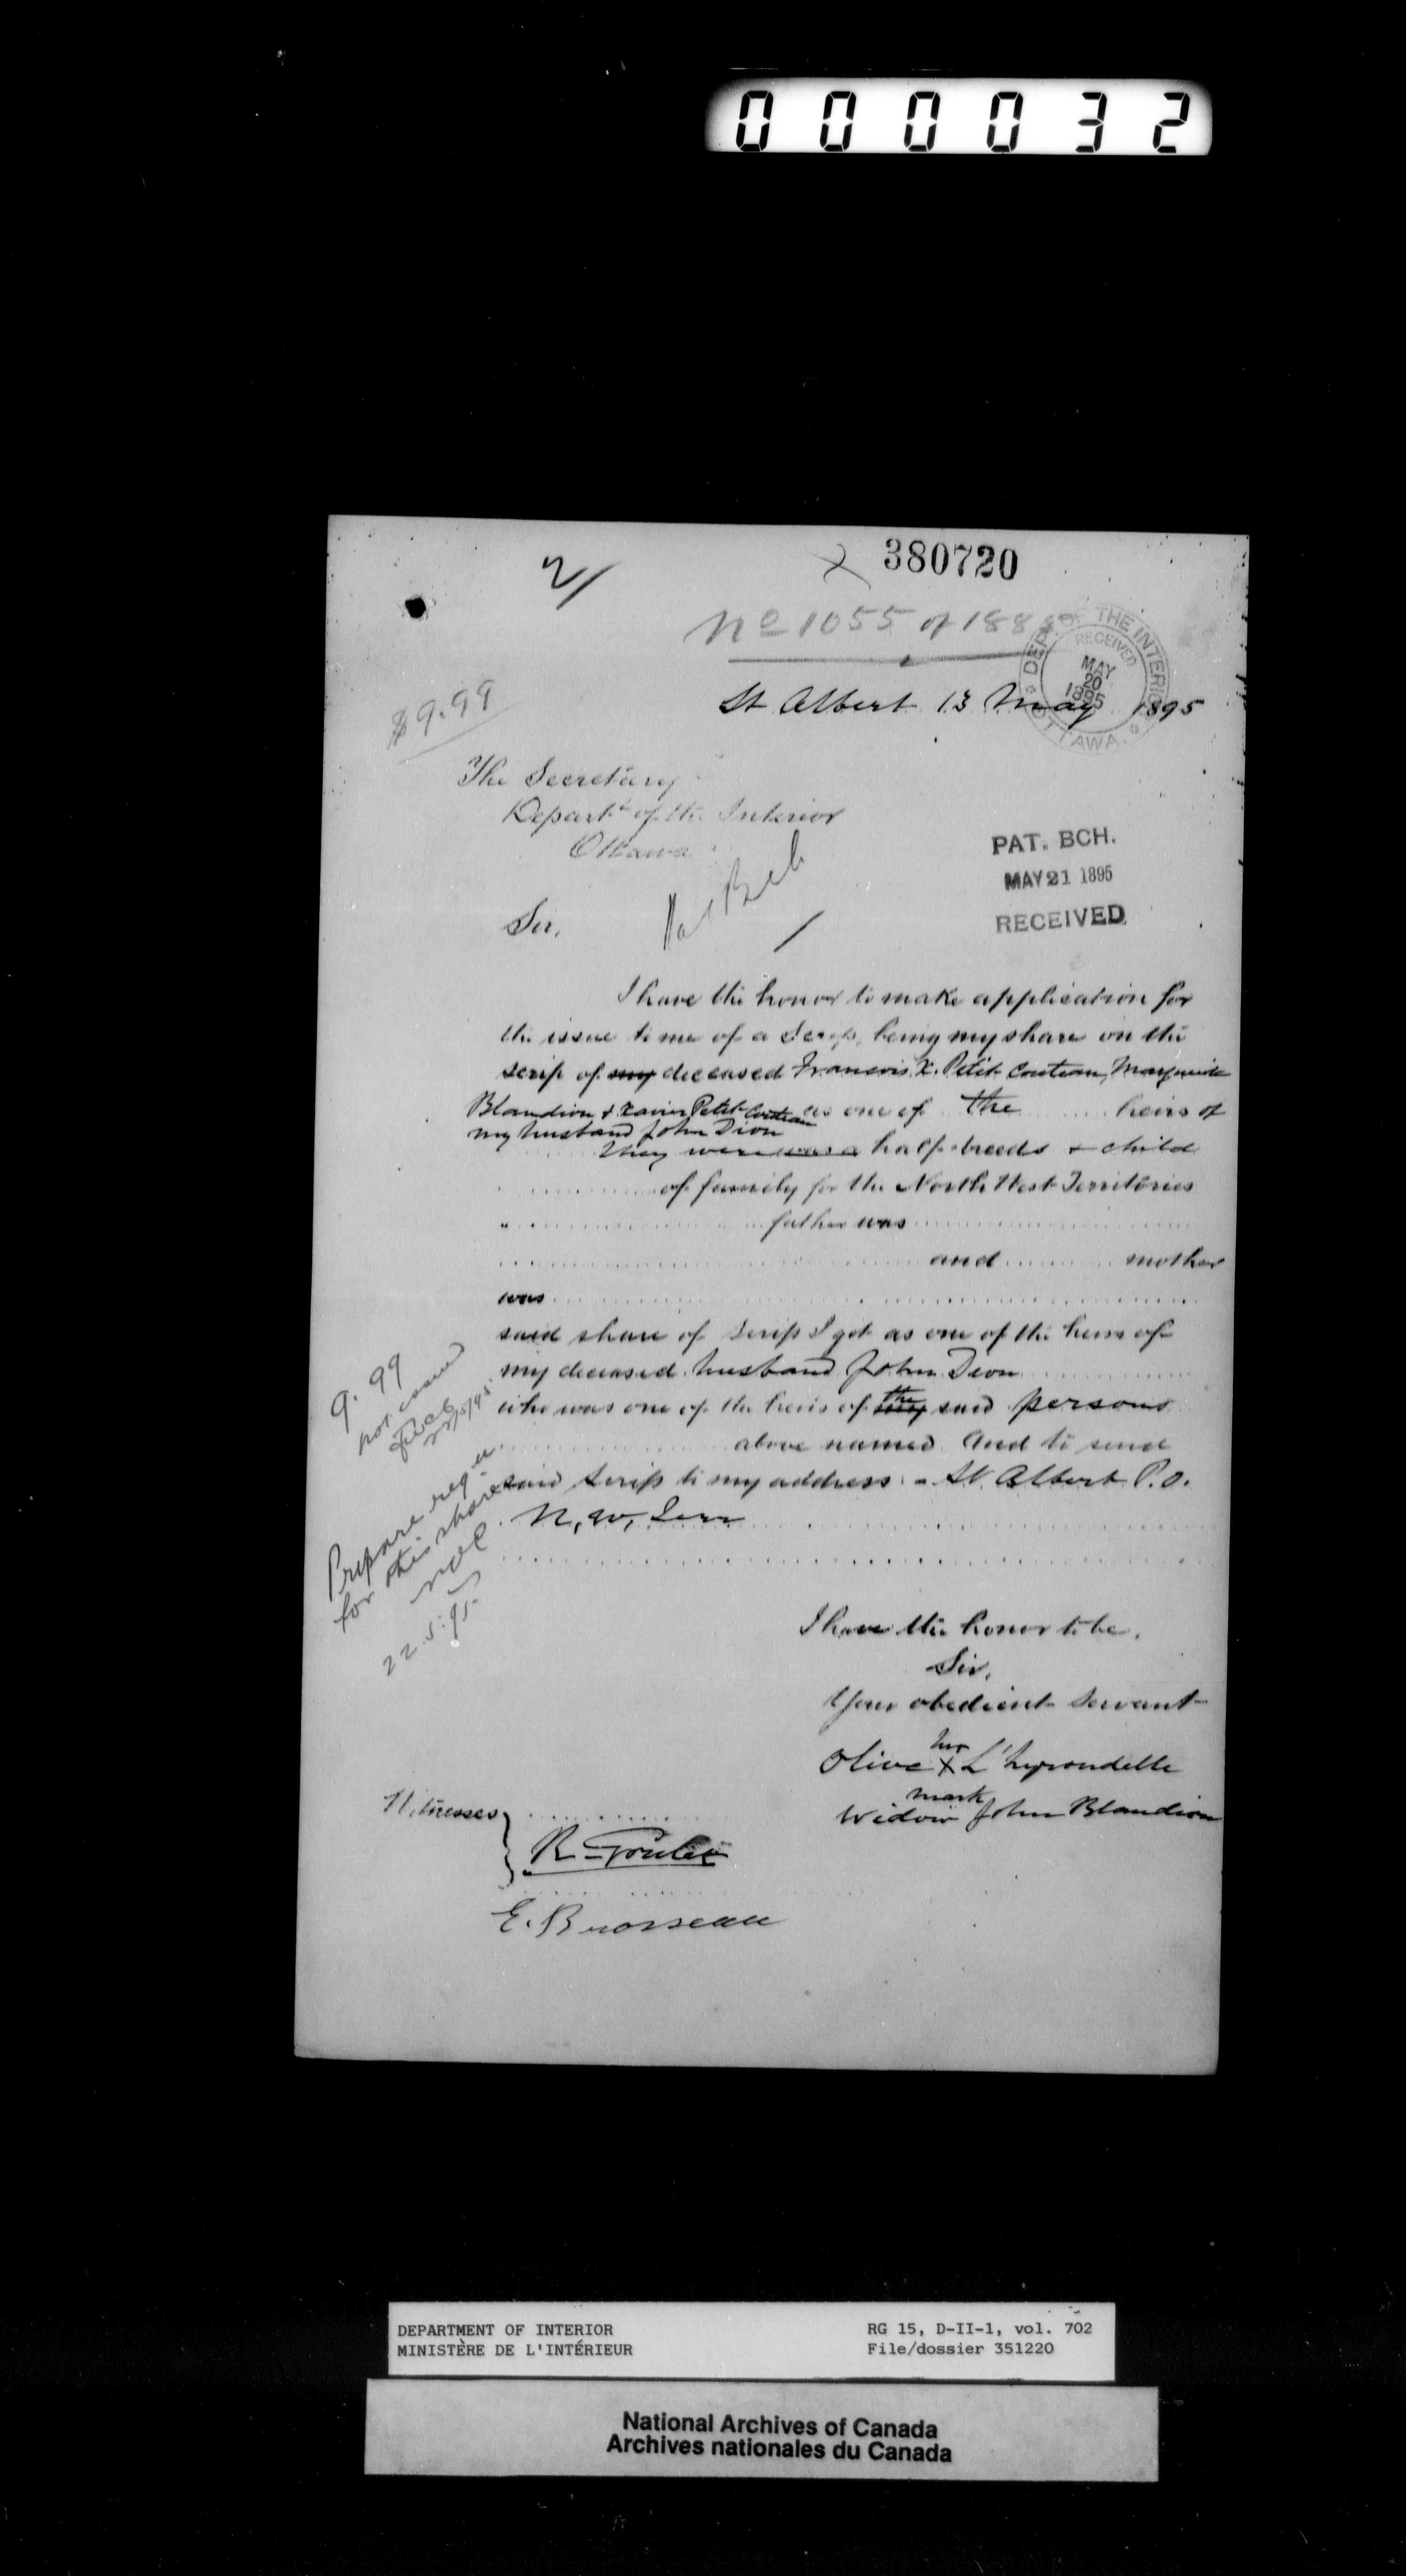 000032
2/
380720
No 1055 of 188
DEPT. OF THE INTERIOR
RECEIVED
MAY
20
1895
OTTAWA
St Albert 13 May 1895
$9.99
The Secretary
Depart^t of the Interior
Ottawa
PAT. BCH.
MAY 21 1895
RECEIVED
Pat Bch
Sir,
I have the honor to make application for
the issue to me of a Scrip, being my share on the
scrip of my deceased Francois X. Petit Couteau, Marguerite
Blandion & Xavier Petit Couteau as one of the heirs of
my husband John Dion
they were was a half-breeds & child
of family for the North West Territories
father was
and mother
was
said share of Scrip I got as one of the heirs of
my deceased husband John Dion
who was one of the heirs of my the said persons
above named. And to send
said Scrip to my address - St. Albert P.O.
N, W, Terr
9.99
not issued
22/5/95
Prepare req n
for this share
22.5.95
I have the honor to be.
Sir,
Your obedient servant
her
Olive X L'hyrondelle
mark
Widow John Blandion
Witnesses
R Goulet
E. Brosseau
DEPARTMENT OF INTERIOR
MINISTÈRE DE L'INTÉRIEUR
RG 15, D-II-1, vol. 702
File/dossier 351220
National Archives of Canada
Archives nationales du Canada